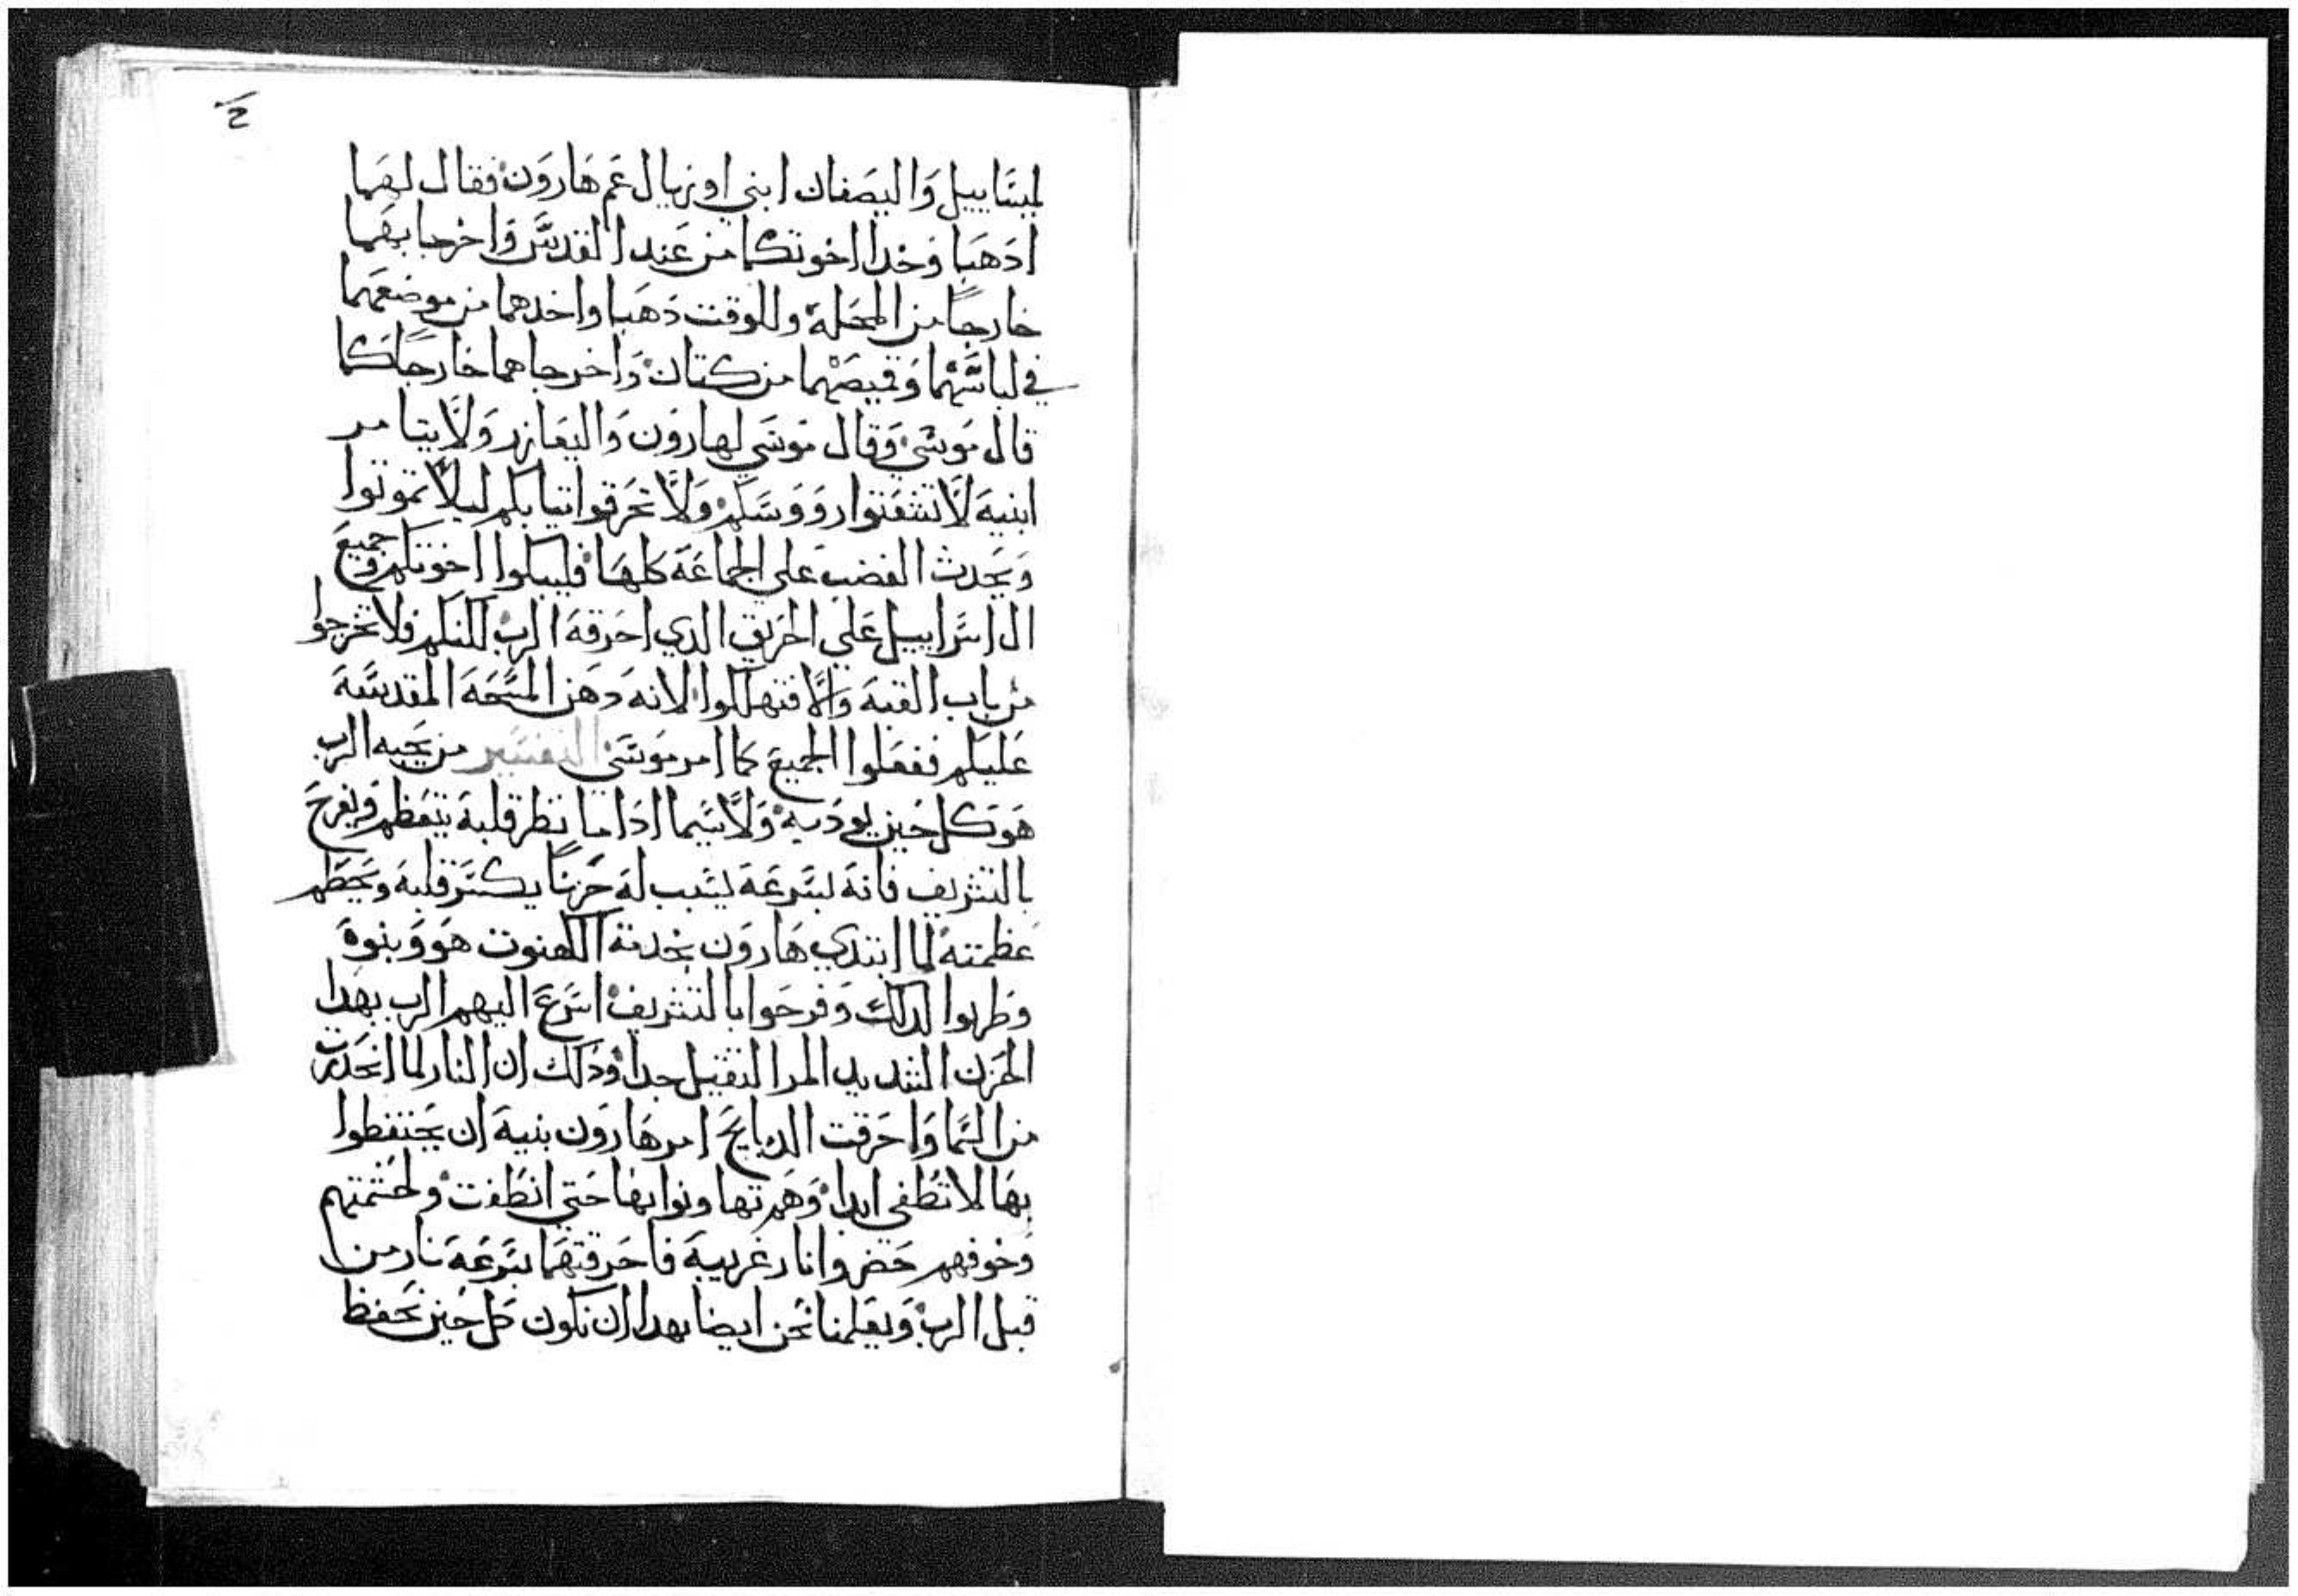 لميساييل واليصفان ابني اوزيال عم هارون فقال لهما
ادهبا وخدا اخوتكما من عند القدس واخرجا بهما
خارجا من المحلة وللوقت دهبا واخدهما من موضعهما
في لباسهما وقميصهما من كتان واخرجاهما خارجا كما
قال موسي وقال موسي لهارون واليعازر ولايتامر
ابنيه لا تشعتوا رووسكم ولا تخرقوا تيابكم ليلا تموتوا
ويحدث الغضب علي الجماعة كلها فليبكوا اخوتكم وجميع
ال اسراييل علي الحريق الدي احرقه الرب لكنكم فلا تخرجوا
من باب القبه والا فتهلكوا لانه دهن المسحه المقدسه
عليكم ففعلوا الجميع كما امر موسي التفسير من يحبه الرب
هو كل حين يودبه ولاسيما اداما نظر قلبه يتعظم ويفرح
بالتشريف فانه بسرعة يسبب له حزنا يكسر قلبه ويحطم
عظمته لما ابتدي هارون بخدمة الكهنوت هو وبنوه
وطربوا لدلك وفرحوا بالتشريف اسرع اليهم الرب بهدا
الحزن الشديد المر التقيل جدا ودلك ان النار لما انحدرت
من السما واحرقت الدبايح امر هارون بنيه ان يحتفطوا
بها لا تطفي ابدا وهم تهاونوا بها حتي انطفت ولحشمتهم
وخوفهم حضروا نار غريبة فاحرقتهما بسرعة نار من
قبل الرب ويعلمنا نحن ايضا بهدا ان نكون كل حين نحفظ